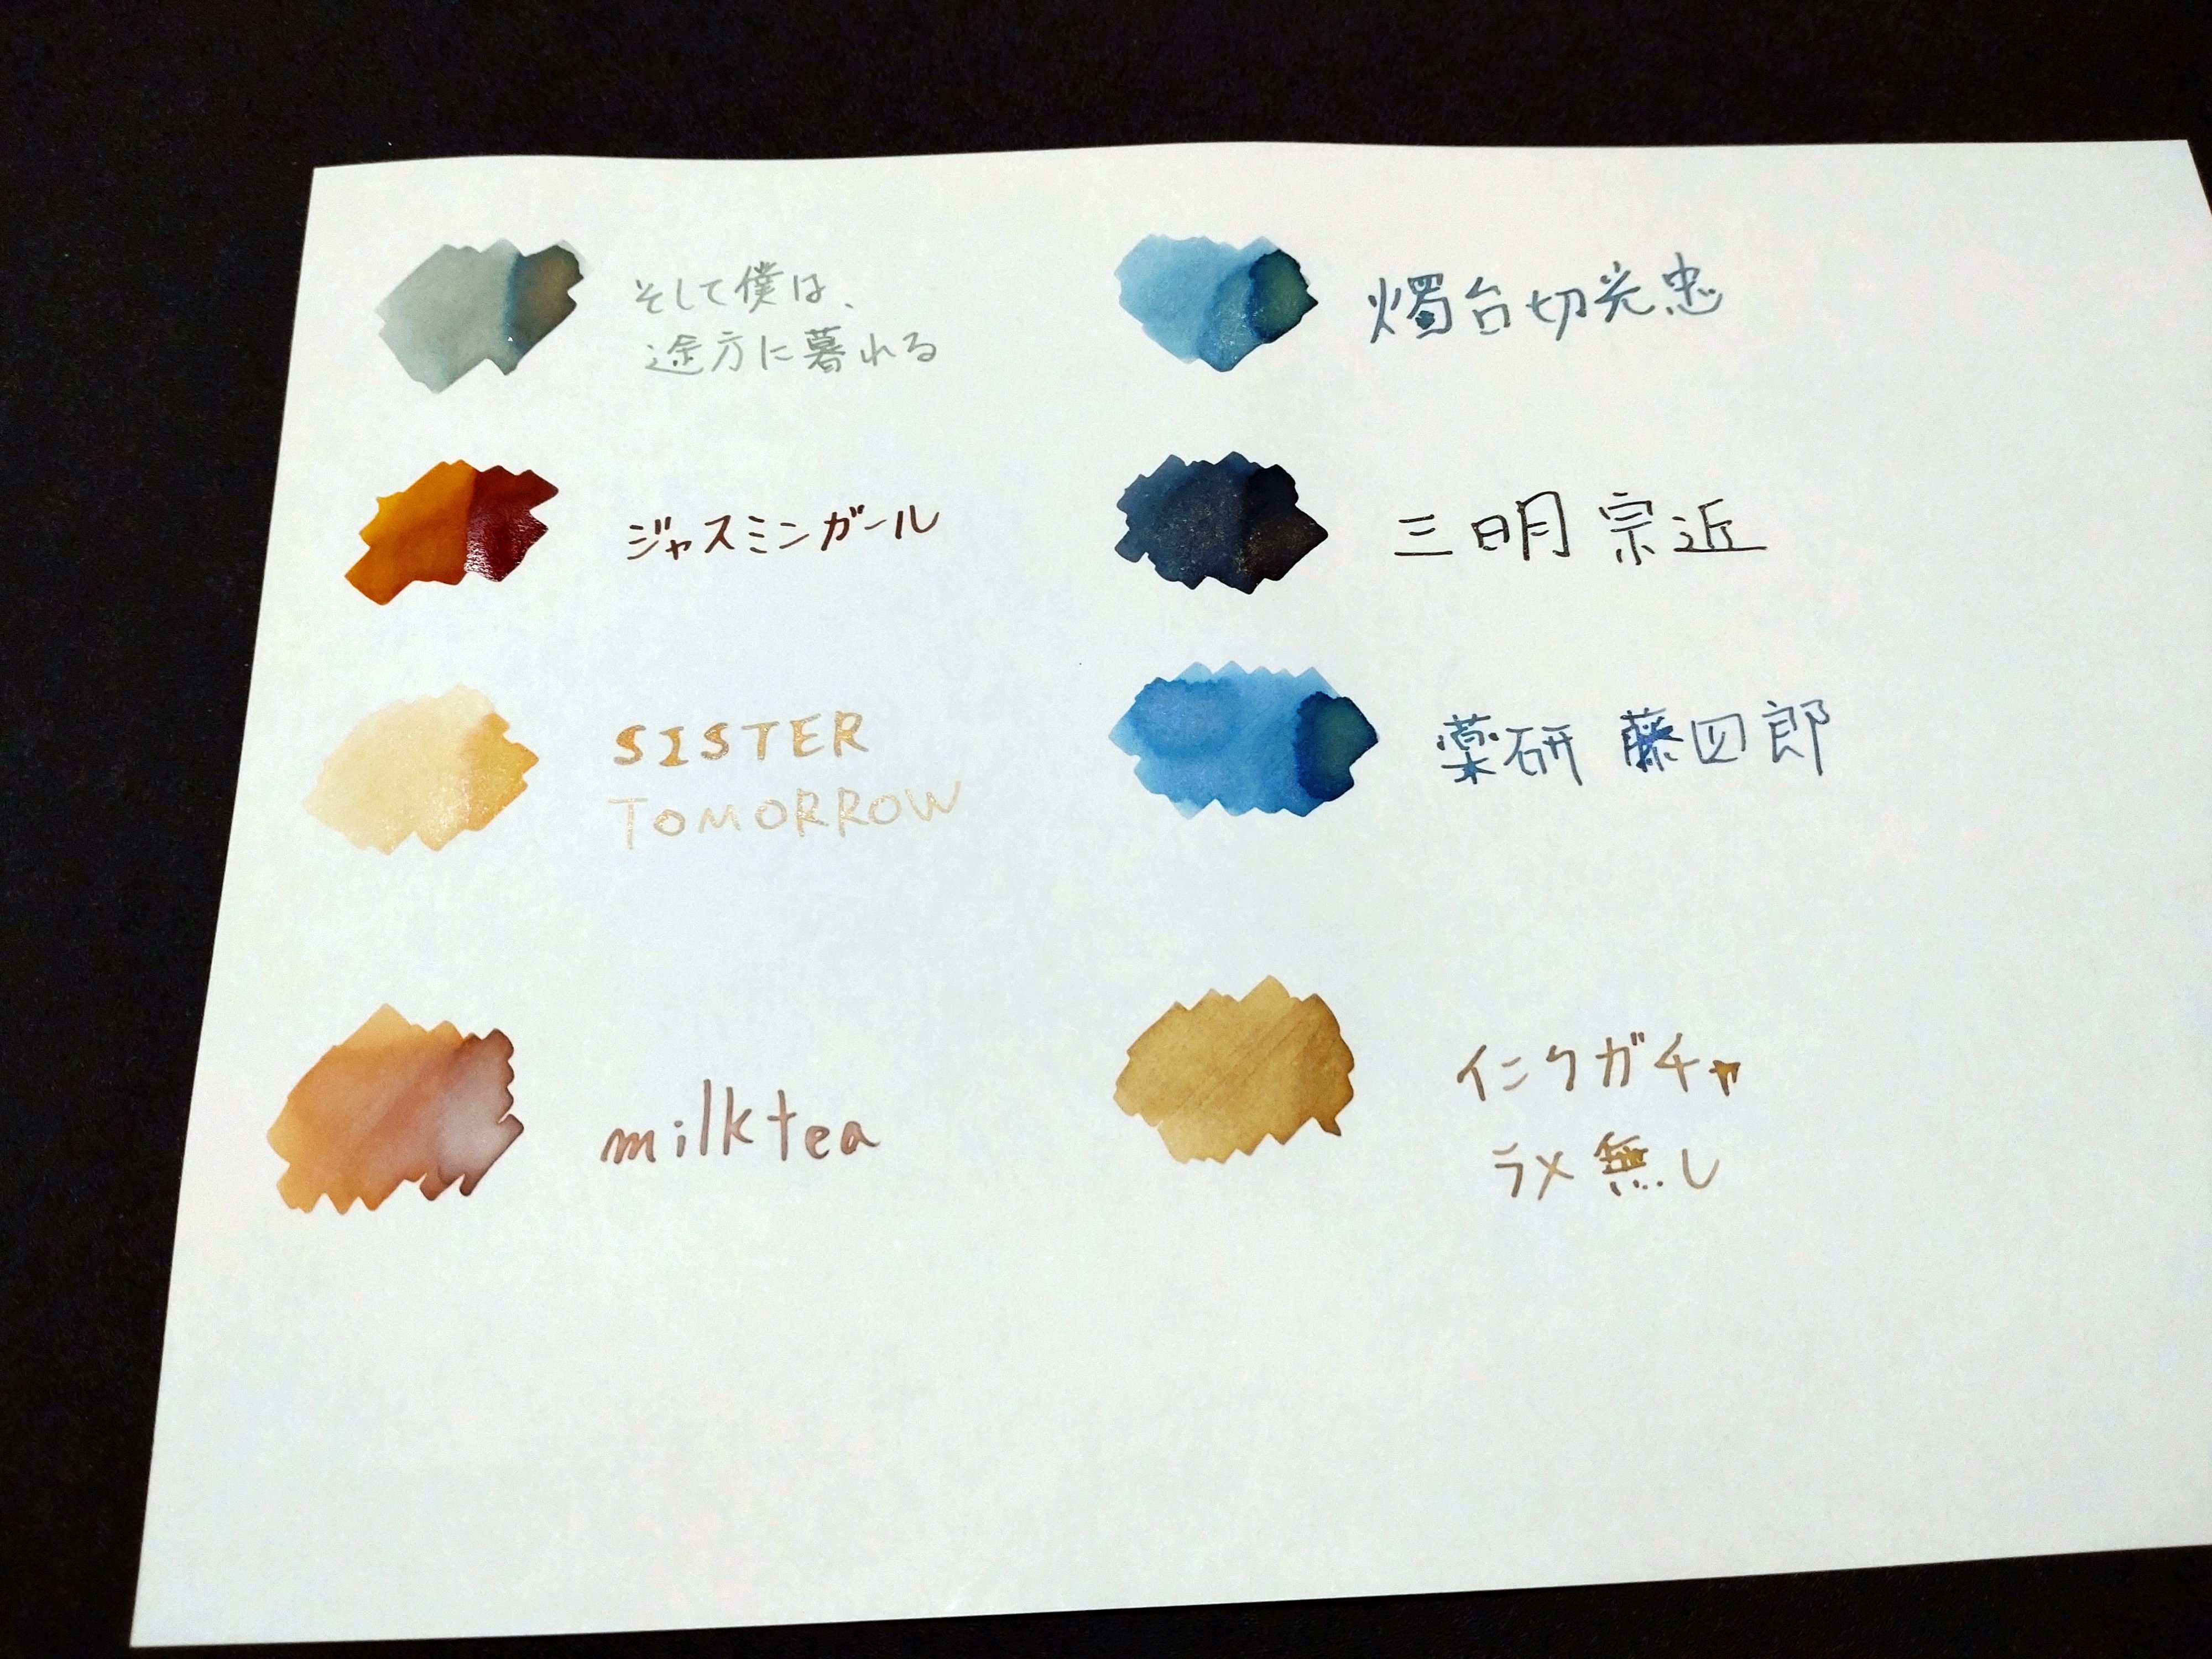 そして僕は、
途方に暮れる
ジャスミンガール
SISTER
TOMORROW
milktea
燭台切光忠
三日月宗近
薬研 藤四郎
インクガチャ
ラメ無し